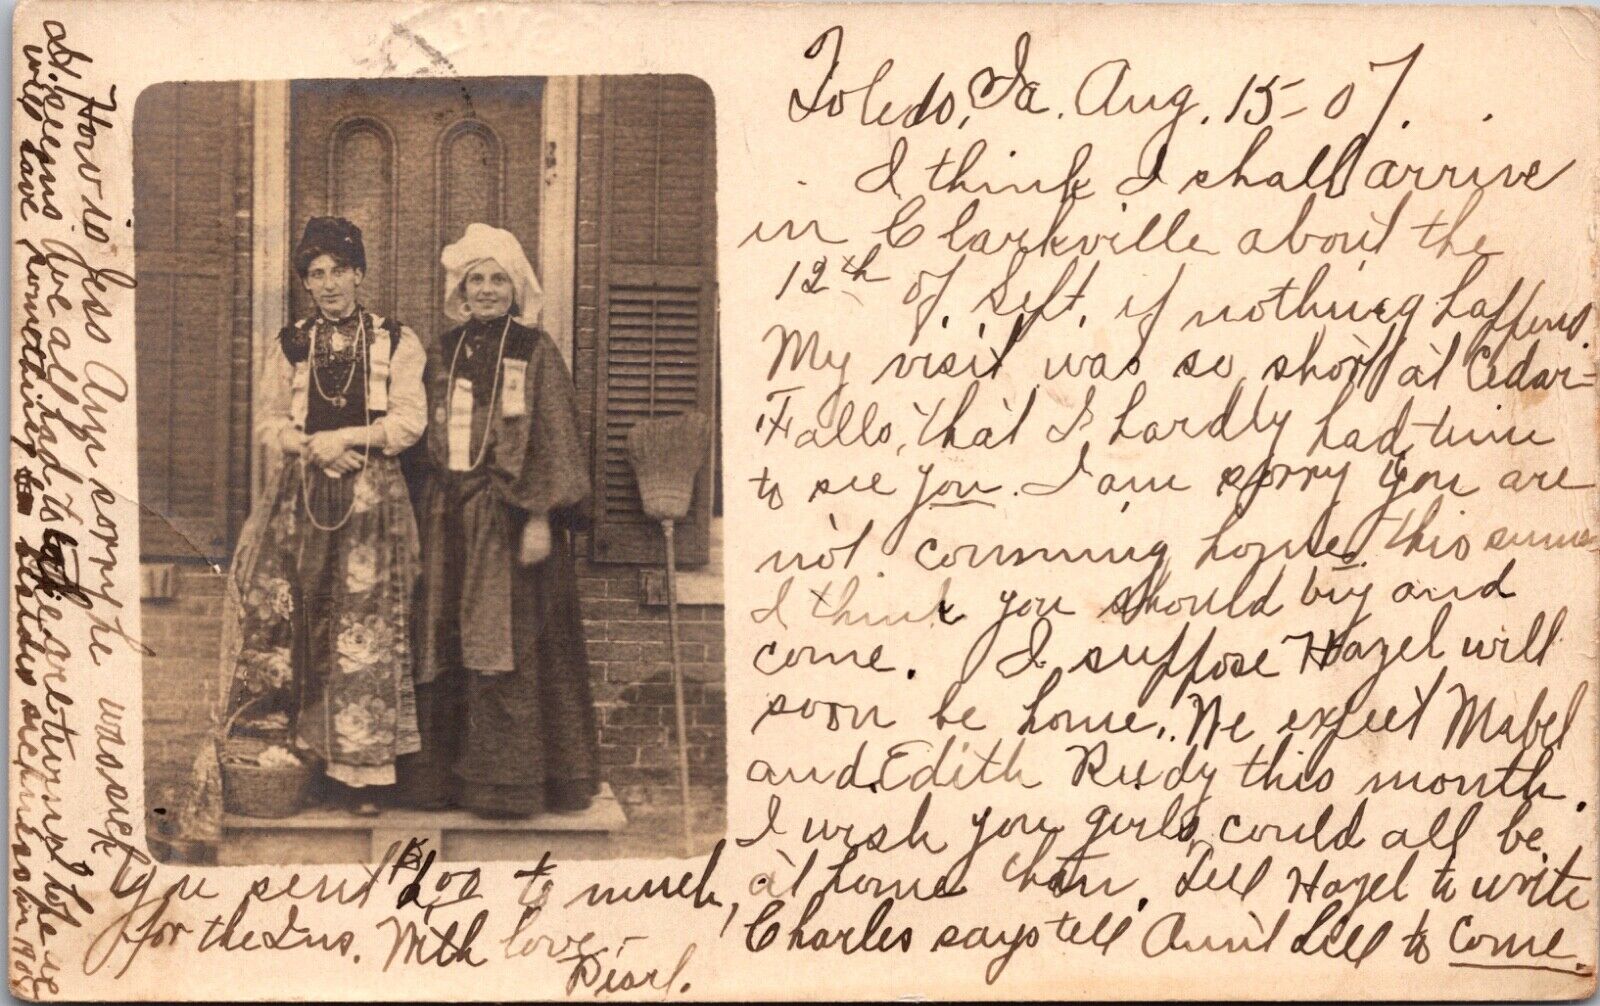 Toledo, Ia. Aug. 15-07.
I think I shall arrive
in Clarkville about the
12th of Sept. if nothing happens.
My visit was so short at Cedar-
Falls, that I hardly had time
to see you. I am sorry you are
not comming home this sume
I think you should try and
come. I suppose Hazel will
soon be home. We expect Mabel
and Edith Rudy this month.
I wish you girls, could all be
at home then. Tell Hazel to write
Charles says tell Aunt Lill to come.
You send $2,00 to much,
for the Ins. With love -
Pearl.
How is Jess Am sorry he was sick
It seems we all had to take our turns I hope we
will have something besides sickness in 1908